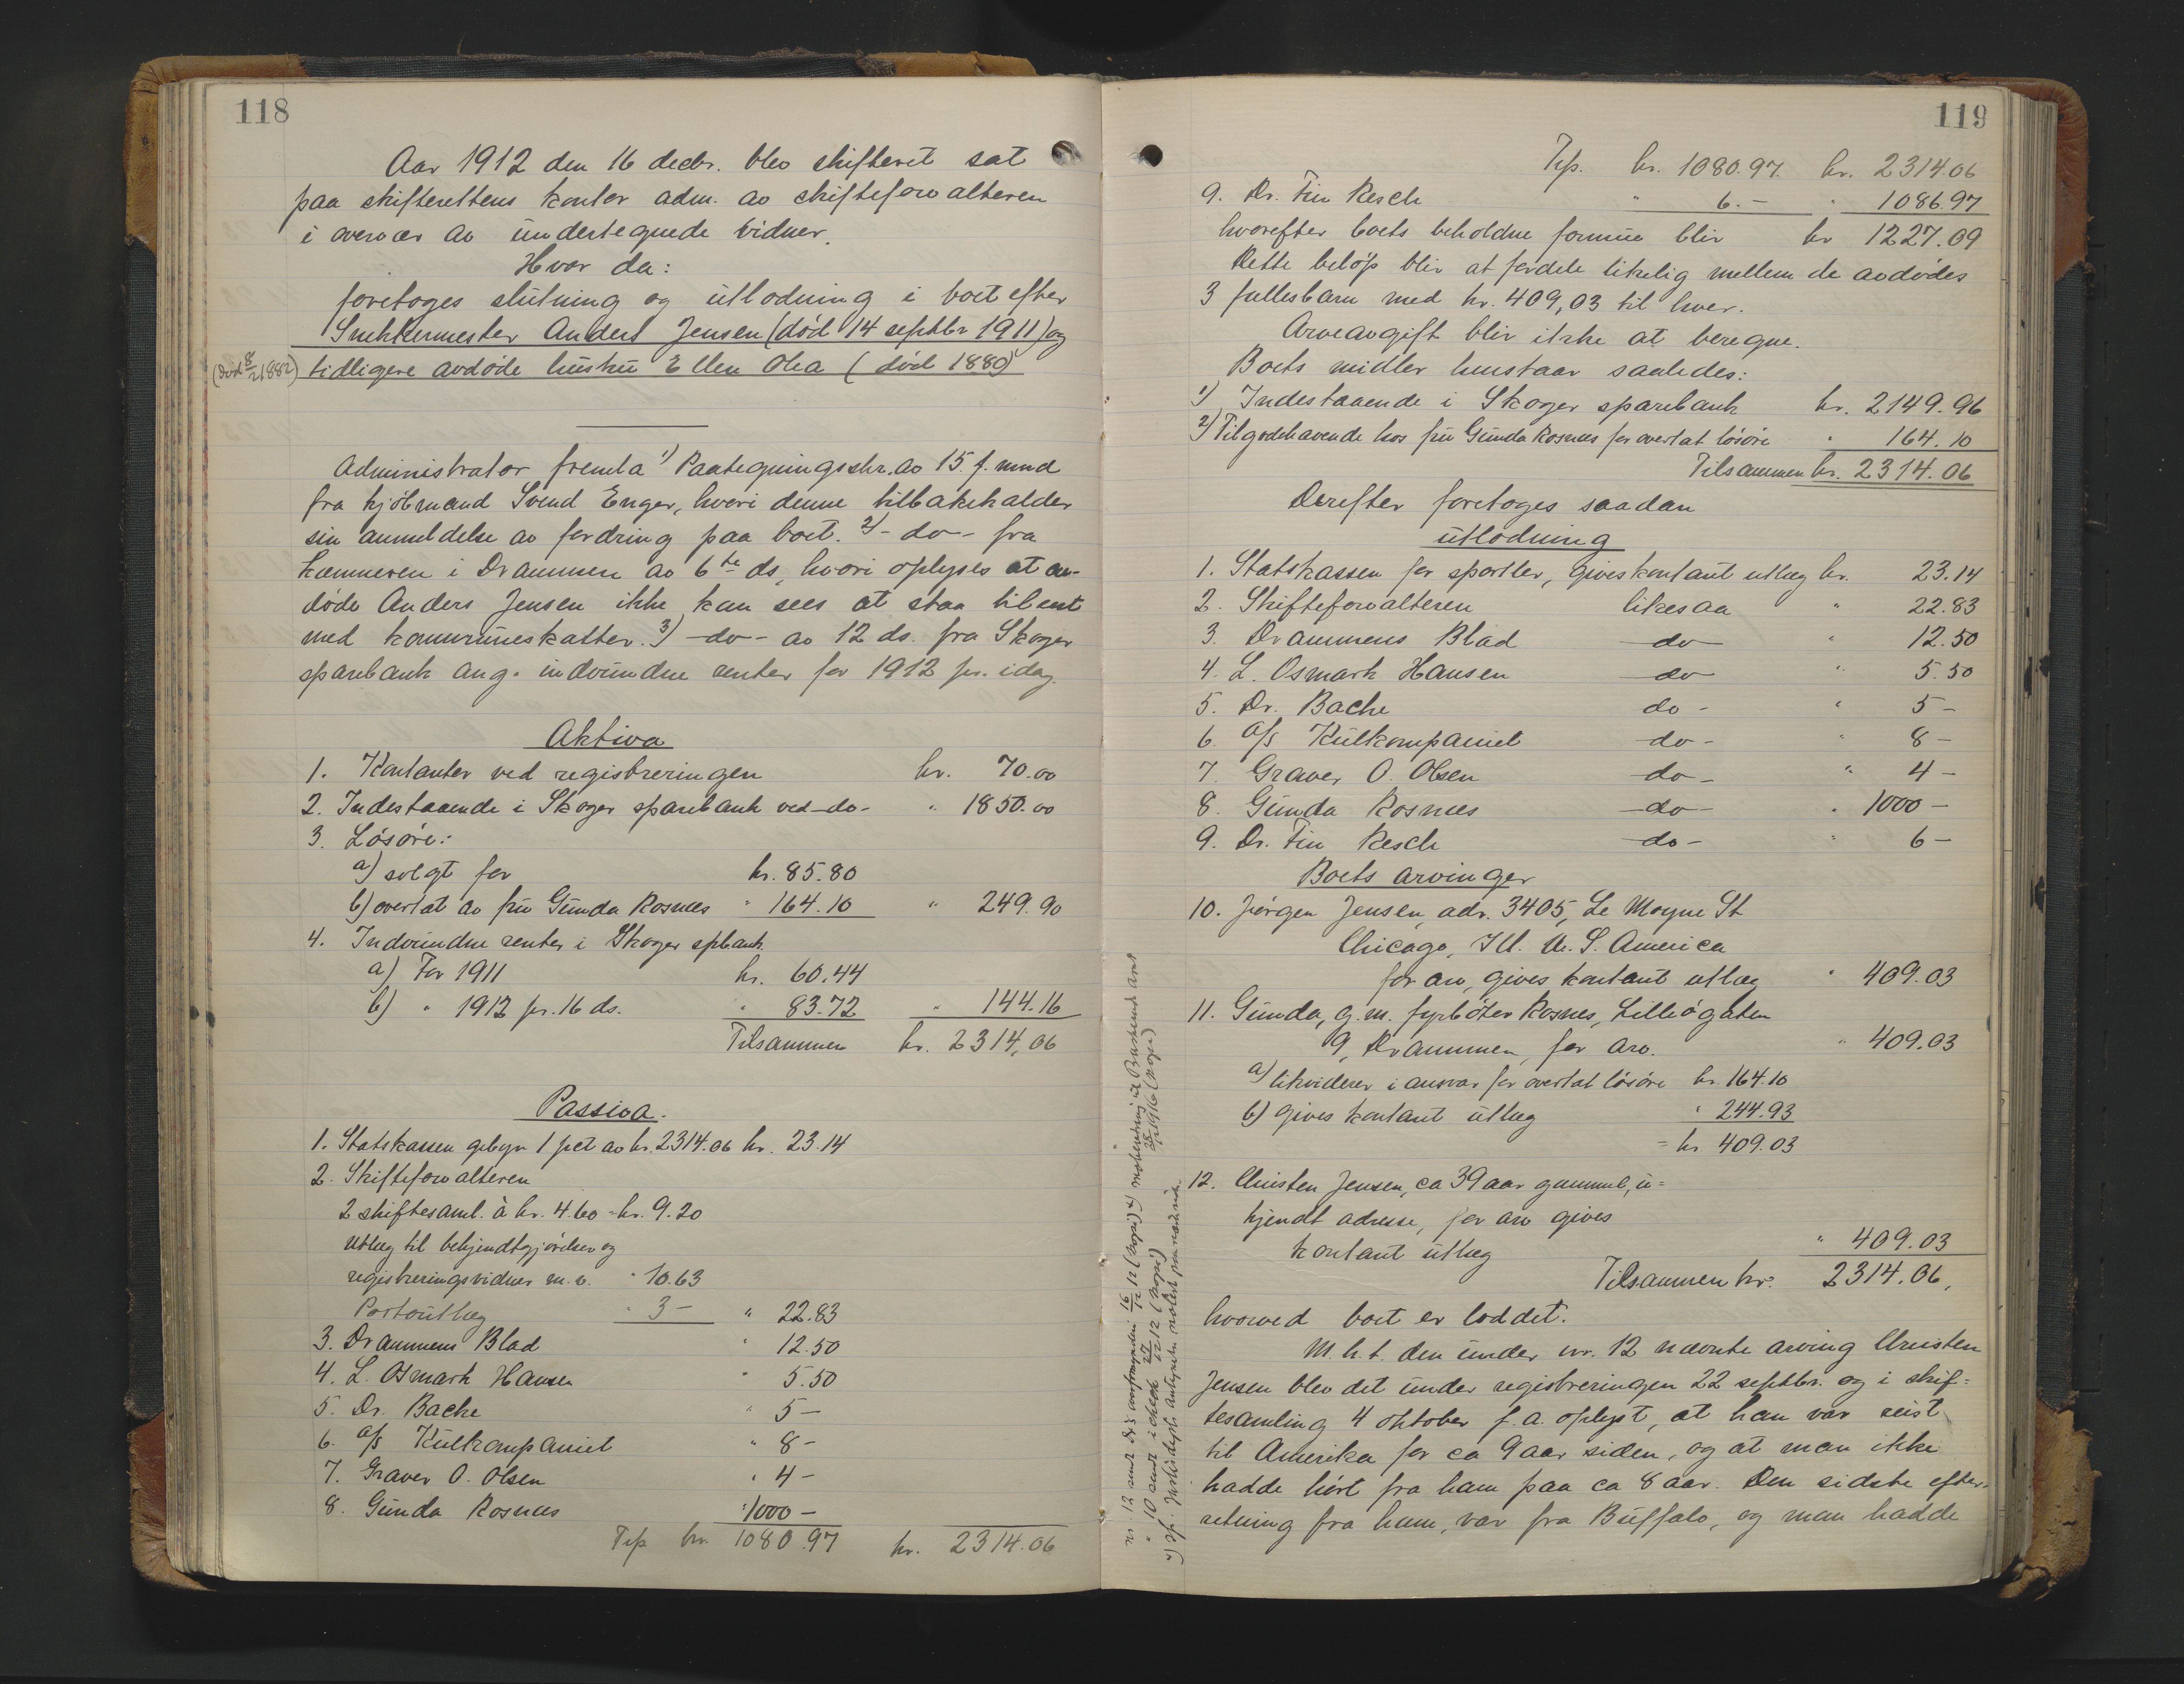 118
Aar 1912 den 16 decbr. blev skifteret sat
paa skifterettens kontor adm. av skifteforvalteren
i overvær av undertegnede vidner.
Hvor da:
foretoges slutning og utlodning i boet efter
Snekkermester Anders Jensen (död 14 septbr 1911) og
(död 8/2 1882) tidligere avdöde hustru Ellen Olea (död 1880)
Administrator fremla 1) Paategningsskr. av 15. f. mnd
fra kjöbmand Svend Enger, hvori denne tilbakekalder
sin anmeldelse av fordring paa boet. 2) - do - fra
kæmneren i Drammen av 6te ds, hvori oplyses at av-
döde Anders Jensen ikke kan sees at staa tilrest
med kommuneskatter. 3) - do - av 12 ds. fra Skoger
sparebank ang. indvundne renter for 1912 pr. idag.
Aktiva
1. Kontanter ved registreringen kr. 70.00
2. Indestaaende i Skoger sparebank ved - do - " 1850.00
3. Lösöre:
a) solgt for kr. 85.80
b) overtat av fru Gunda Rosnæs " 164.10 " 249.90
4. Indvundne renter i Skoger spbank.
a) For 1911 kr. 60.44
b) " 1912 pr. 16 ds. " 83.72 " 144.16
Tilsammen kr. 2314,06
Passiva.
1. Statskassen gebyr 1 pct av kr. 2314.06 kr. 23.14
2. Skifteforvalteren
2 skiftesaml. à kr. 4.60 = kr. 9.20
Utlæg til bekjendtgjörelser og
registreringsvidner m.v. " 10.63
Portoutlæg " 3 - " 22.83
3. Drammens Blad " 12.50
4. L. Osmark Hansen " 5.50
5. Dr. Bache " 5 -
6. a/s Kulkompaniet " 8 -
7. Graver O. Olsen " 4 -
8. Gunda Rosnæs " 1000 -
Trp kr. 1080.97 kr. 2314.06
119
Trp. kr. 1080.97. kr. 2314.06
9. Dr. Fin Resch " 6. - " 1086.97
hvorefter boets beholdne formue blir kr 1227.09
Dette belöp blir at fordele likelig mellem de avdödes
3 fællesbarn med kr. 409,03 til hver.
Arveavgift blir ikke at beregne.
Boets midler henstaar saaledes:
1) Indestaaende i Skoger sparebank kr. 2149.96
2) Tilgodehavende hos fru Gunda Rosnæs for overtat lösöre " 164.10
Tilsammen kr. 2314.06
Derefter foretoges saadan
utlodning
1. Statskassen for sportler, gives kontant utlæg kr. 23.14
2. Skifteforvalteren likesaa " 22.83
3. Drammens Blad do " 12.50
4. L. Osmark Hansen do " 5.50
5. Dr. Bache do - " 5 -
6. a/s Kulkompaniet do - " 8 -
7. Graver O. Olsen do - " 4 -
8. Gunda Rosnæs do " 1000 -
9. Dr. Fin Resch do - " 6 -
Boets arvinger
10. Jörgen Jensen, adr. 3405, Le Moyne St
Chicago, Ill. U. S. America
for arv, gives kontant utlæg " 409.03
11. Gunda, g. m. fyrböter Rosnes, Lilleögaten
9, Drammen, for arv. " 409.03
a) likviderer i ansvar for overtat lösöre kr. 164.10
b) gives kontant utlæg " 244.93
= kr 409.03
12. Christen Jensen, ca 39 aar gammel, u=
kjendt adresse, for arv gives
kontant utlæg " 409.03
Tilsammen kr. 2314.06,
hvorved boet er loddet.
M. h. t. den under nr. 12 nævnte arving Christen
Jensen blev det under registreringen 22 septbr. og i skif=
tesamling 4 oktober f. a. oplyst, at han var reist
til Amerika for ca 9 aar siden, og at man ikke
hadde hört fra ham paa ca 8 aar. Den sidste efter-
retning fra ham, var fra Buffalo, og man hadde
nr. 12 sendt 16/12 12 (kopi)
" 10 sendt i check 27/12 12 (kopi)